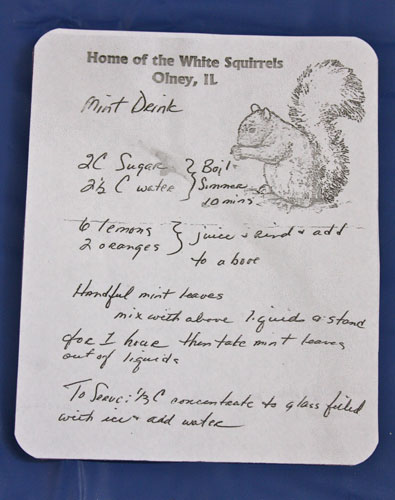 Home of the White Squirrels
Olney, IL
Mint Drink
2C Sugar } Boil &
2½ C water } Simmer
10 mins.
6 lemons } juice & rind & add
2 oranges } to above
Handful mint leaves
mix with above liquids & stand
for 1 hour then take mint leaves
out of liquids
To Serve: ⅓ C concentrate to glass filled
with ice & add water